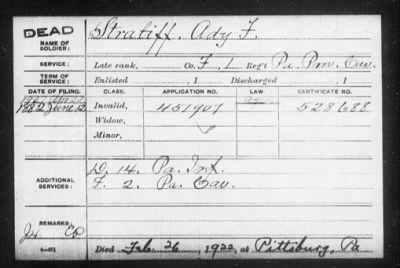 DEAD
NAME OF SOLDIER: Stratiff. Ady F.
SERVICE: Late rank, Co. F, 1 Reg't Pa. Prov. Cav.
TERM OF SERVICE: Enlisted , 1 Discharged , 1
DATE OF FILING. CLASS. APPLICATION NO. LAW. CERTIFICATE NO.
1882 June 12 Invalid, 451907 528688
Widow,
Minor,
ADDITIONAL SERVICES: D. 14. Pa. Inf.
F. 2. Pa. Cav.
REMARKS:
Died Feb. 26, 1922, at Pittsburg, Pa